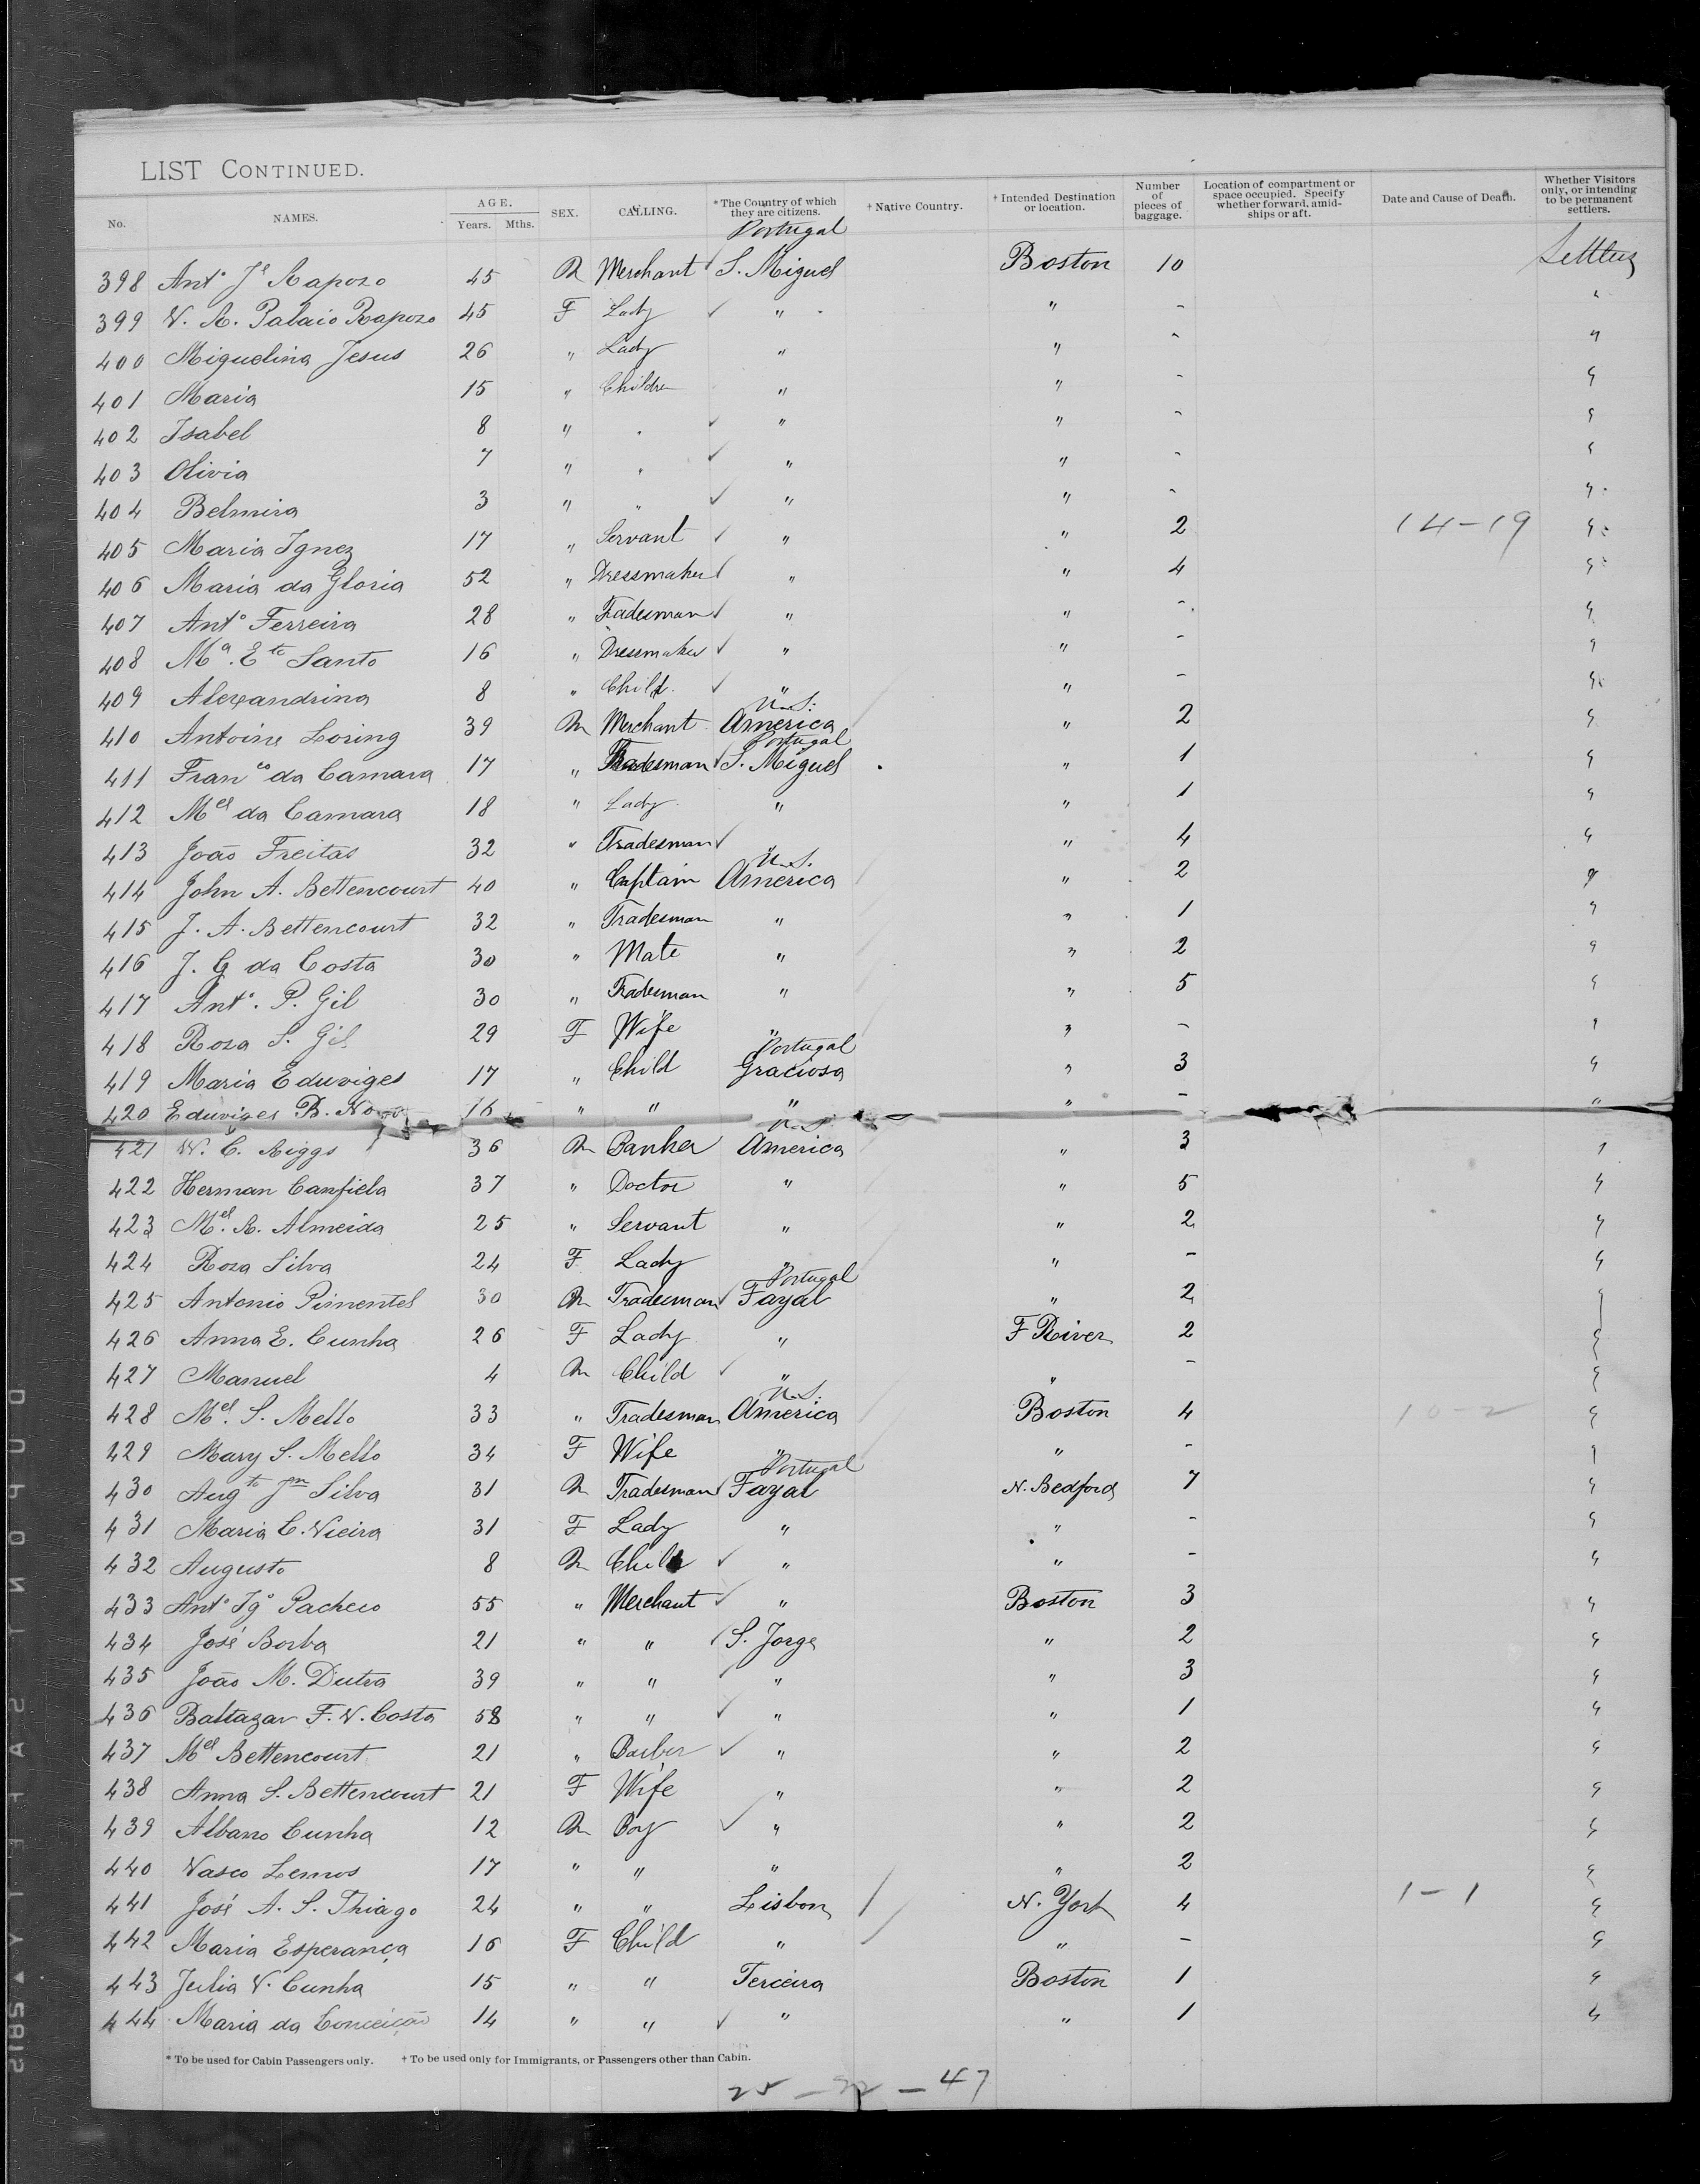 LIST CONTINUED.
No. NAMES. AGE. Years. Mths. SEX. CALLING. *The Country of which they are citizens. †Native Country. †Intended Destination or location. Number of pieces of baggage. Location of compartment or space occupied. Specify whether forward, amidships or aft. Date and Cause of Death. Whether Visitors only, or intending to be permanent settlers.
Portugal
398 Antº Jº Rapozo 45 M Merchant ✓ S. Miguel Boston 10 Settlers
399 V. R. Palaio Rapozo 45 F Lady ✓ " " - "
400 Miguelina Jesus 26 " Lady " " - "
401 Maria 15 " Children " " - "
402 Isabel 8 " " ✓ " " - "
403 Olivia 7 " " ✓ " " - "
404 Belmira 3 " " ✓ " " - "
405 Maria Ignez 17 " Servant ✓ " " 2 14-19 "
406 Maria da Gloria 52 " Dressmaker ✓ " " 4 "
407 Antº Ferreira 28 " Tradesman ✓ " " - "
408 Mª. Eto Santo 16 " Dressmaker ✓ " " - "
409 Alexandrina 8 " Child. ✓ " " - "
U.S.
410 Antoine Loring 39 M Merchant America " 2 "
Portugal
411 Franco da Camara 17 " Tradesman ✓ S. Miguel " 1 "
412 Mel da Camara 18 " Lady " " 1 "
413 João Freitas 32 " Tradesman ✓ " " 4 "
U.S.
414 John A. Bettencourt 40 " Captain America " 2 "
415 J. A. Bettencourt 32 " Tradesman " " 1 "
416 J. G da Costa 30 " Mate " " 2 "
417 Antº. P. Gil 30 " Tradesman " " 5 "
418 Rosa S. Gil 29 F Wife " " - "
Portugal
419 Maria Eduviges 17 " Child Graciosa " 3 "
420 Eduviges B. 16 " " " " - "
U.S.
421 W. C. Riggs 36 M Banker America " 3 "
422 Herman Canfield 37 " Doctor " " 5 "
423 Mel. R. Almeida 25 " Servant " " 2 "
424 Rosa Silva 24 F Lady " " - "
Portugal
425 Antonio Pimentel 30 M Tradesman ✓ Fayal " 2 "
426 Anna E. Cunha 26 F Lady " F River 2 "
427 Manuel 4 M Child ✓ " " - "
U.S.
428 Mel. S. Mello 33 " Tradesman America Boston 4 10-2 "
429 Mary S. Mello 34 F Wife " " - "
Portugal
430 Augto Jm Silva 31 M Tradesman ✓ Fayal N. Bedford 7 "
431 Maria C. Vieira 31 F Lady " " - "
432 Augusto 8 M Child ✓ " " - "
433 Antº Igº Pacheco 55 " Merchant ✓ " Boston 3 "
434 José Borba 21 " " ✓ S. Jorge " 2 "
435 João M. Dutra 39 " " ✓ " " 3 "
436 Baltazar F. V. Costa 58 " " ✓ " " 1 "
437 Mel Bettencourt 21 " Barber ✓ " " 2 "
438 Anna S. Bettencourt 21 F Wife " " 2 "
439 Albano Cunha 12 M Boy ✓ " " 2 "
440 Vasco Lemos 17 " " " " 2 "
441 José A. S. Thiago 24 " " Lisbon N. York 4 1-1 "
442 Maria Esperança 16 F Child " " - "
443 Julia V. Cunha 15 " " Terceira Boston 1 "
444 Maria da Conceição 14 " " ✓ " " 1 "
* To be used for Cabin Passengers only. † To be used only for Immigrants, or Passengers other than Cabin.
25 - 22 - 47